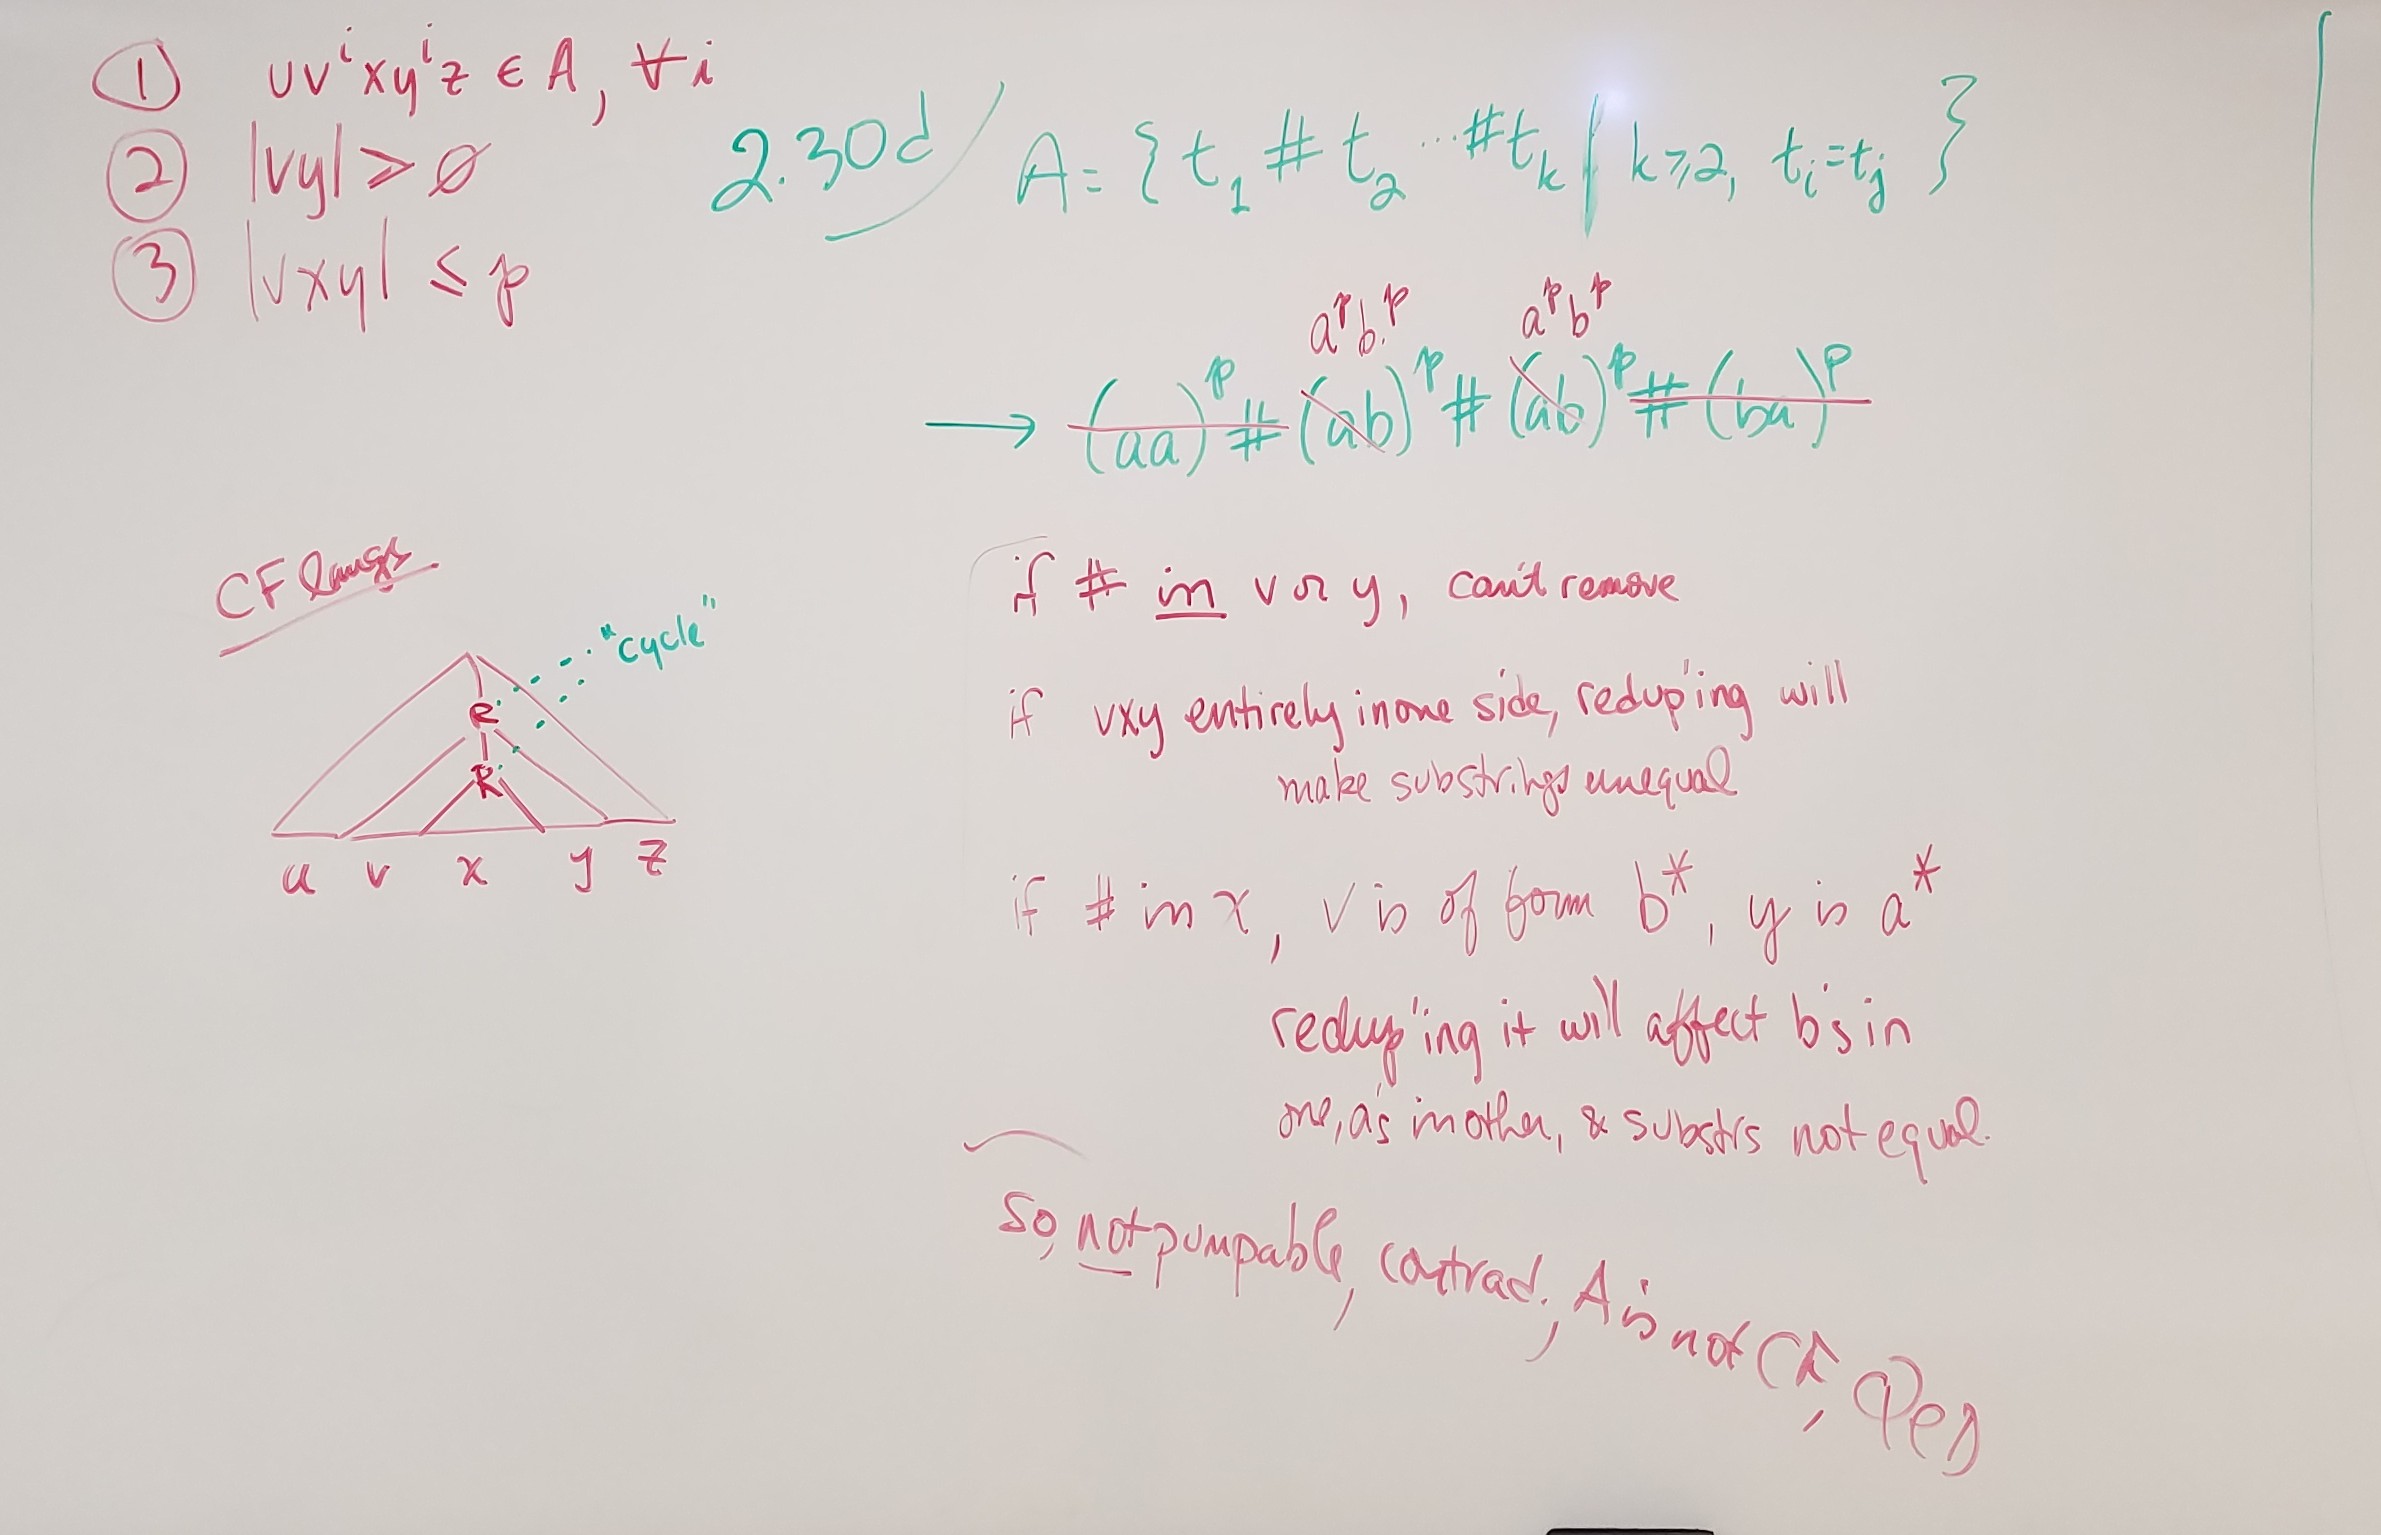 ① uvⁱxyⁱz ∈ A, ∀i
② |vy| > ∅
③ |vxy| ≤ p
2.30d
A = { t₁ # t₂ ... # tₖ | k ≥ 2, tᵢ = tⱼ }
aᵖbᵖ aᵖbᵖ
→ (aa)ᵖ # (ab)ᵖ # (ab)ᵖ # (ba)ᵖ
CF langs
"cycle"
R
R
u v x y z
if # in v or y, can't remove
if vxy entirely in one side, redup'ing will
make substrings unequal
if # in x, v is of form b*, y is a*
redup'ing it will affect b's in
one, a's in other, & substrs not equal.
So, not pumpable, contrad., A is not CF, QED